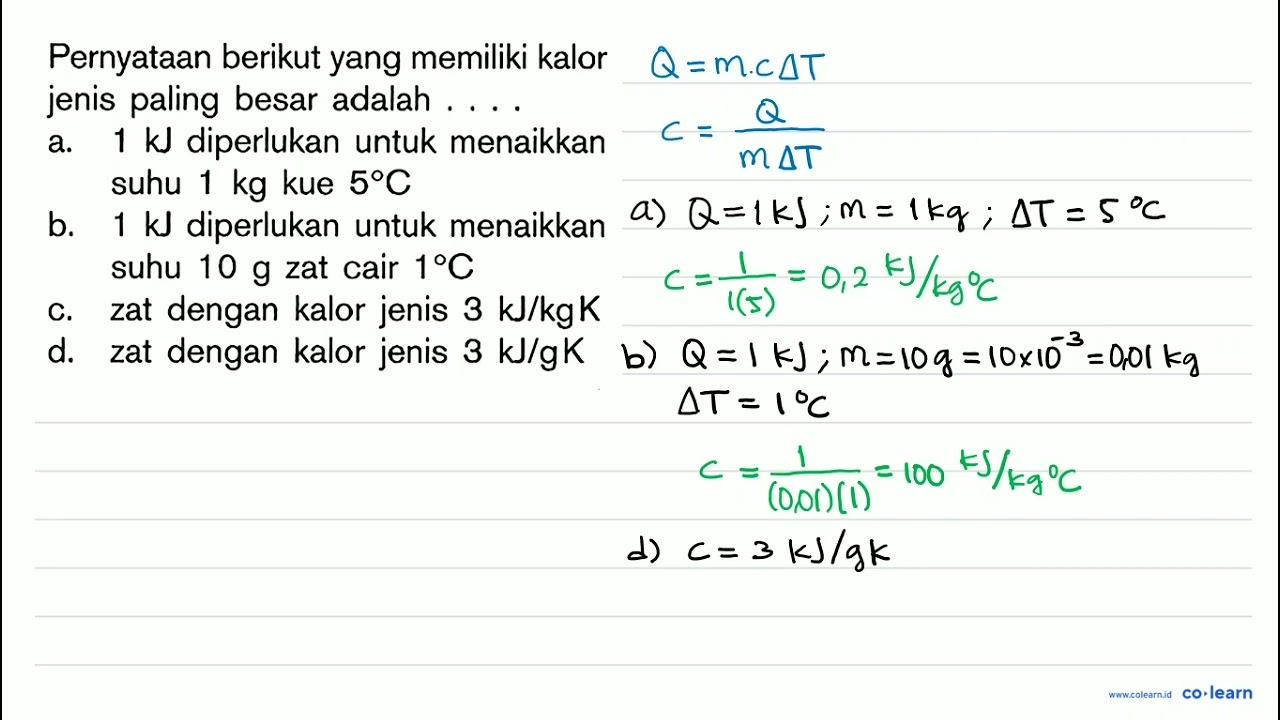 Pernyataan berikut yang memiliki kalor
jenis paling besar adalah . . . .
a. 1 kJ diperlukan untuk menaikkan
suhu 1 kg kue 5°C
b. 1 kJ diperlukan untuk menaikkan
suhu 10 g zat cair 1°C
c. zat dengan kalor jenis 3 kJ/kgK
d. zat dengan kalor jenis 3 kJ/gK
Q = m.cΔT
c = Q / mΔT
a) Q = 1 kJ ; m = 1 kg ; ΔT = 5 °C
c = 1 / 1(5) = 0,2 kJ/kg°C
b) Q = 1 kJ ; m = 10 g = 10 × 10⁻³ = 0,01 kg
ΔT = 1 °C
c = 1 / (0,01)(1) = 100 kJ/kg°C
d) c = 3 kJ/gK
www.colearn.id co·learn